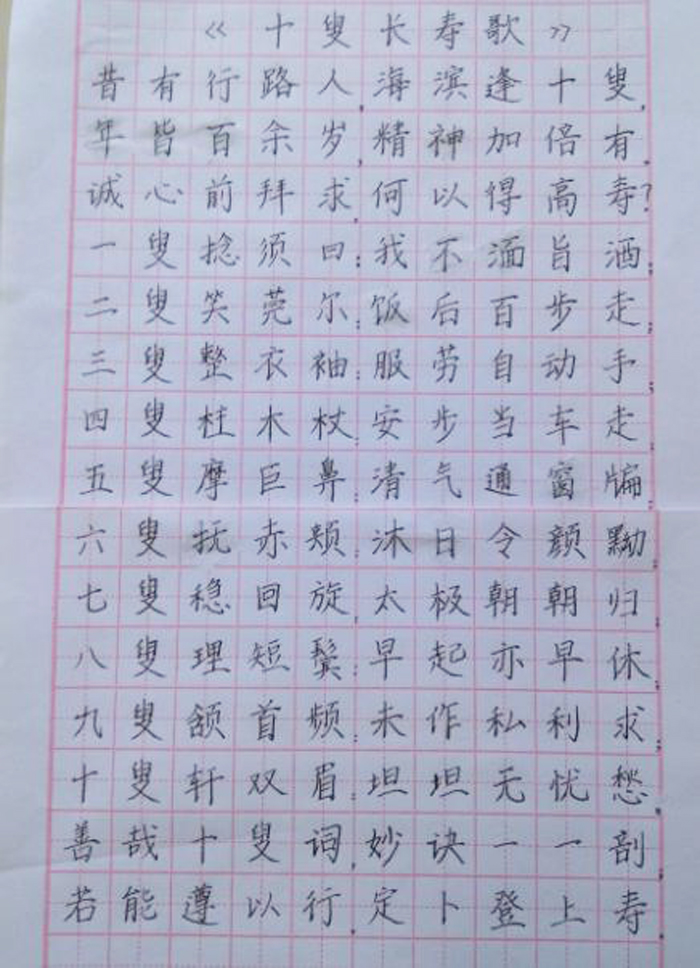 《十叟长寿歌》
昔有行路人,海滨逢十叟,
年皆百余岁,精神加倍有,
诚心前拜求,何以得高寿?
一叟捻须曰:我不湎旨酒;
二叟笑莞尔:饭后百步走;
三叟整衣袖:服劳自动手;
四叟柱木杖:安步当车走;
五叟摩巨鼻:清气通窗牖;
六叟抚赤颊:沐日令颜黝;
七叟稳回旋,太极朝朝归;
八叟理短鬓:早起亦早休;
九叟颔首频:未作私利求;
十叟轩双眉:坦坦无忧愁。
善哉十叟词,妙诀一一剖,
若能遵以行,定卜登上寿。